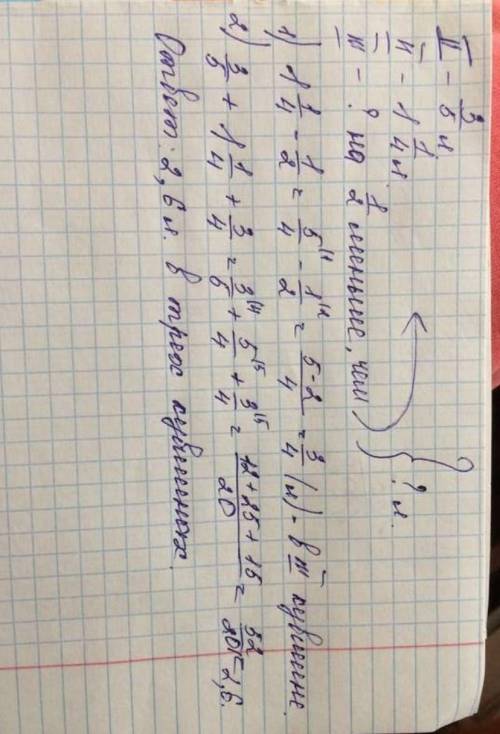 I - 3/5 л
II - 1 1/4 л
III - ? на 1/2 меньше, чем
? л.
1) 1 1/4 - 1/2 = 5/4 - 1/2 = 5-2/4 = 3/4 (л) - в III кувшине.
2) 3/5 + 1 1/4 + 3/4 = 3/5 + 5/4 + 3/4 = 12+25+15/20 = 52/20 = 2,6.
Ответ: 2,6 л. в трёх кувшинах.